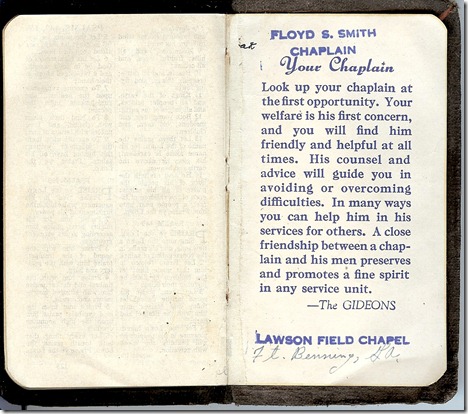 FLOYD S. SMITH
CHAPLAIN
at
Your Chaplain
Look up your chaplain at
the first opportunity. Your
welfare is his first concern,
and you will find him
friendly and helpful at all
times. His counsel and
advice will guide you in
avoiding or overcoming
difficulties. In many ways
you can help him in his
services for others. A close
friendship between a chap-
lain and his men preserves
and promotes a fine spirit
in any service unit.
—The GIDEONS
LAWSON FIELD CHAPEL
Ft. Benning, GA.